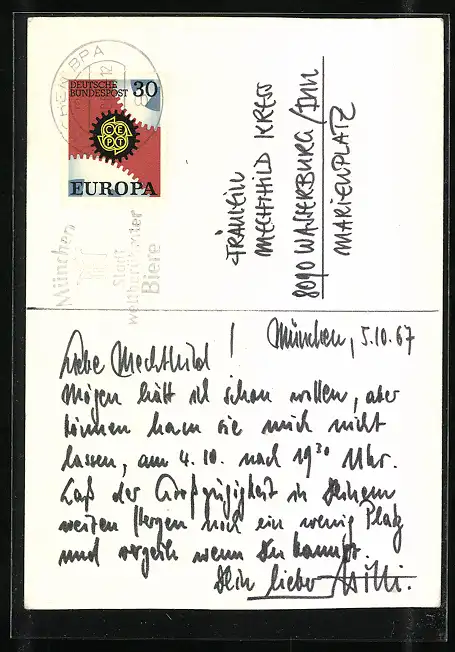 DEUTSCHE
BUNDESPOST 30
CEPT
EUROPA
München
Stadt
weltberühmter
Biere
Fräulein
Mechthild Kress
8090 Wasserburg/Inn
Marienplatz
München, 5.10.67
Liebe Mechthild!
Mögen hätt ich schon wollen, aber
können ham sie mich nicht
lassen, am 4.10. nach 19 30 Uhr.
Laß der Großzügigkeit in Deinem
weiten Herzen noch ein wenig Platz
und verzeih wenn Du kannst.
Dein lieber Willi.